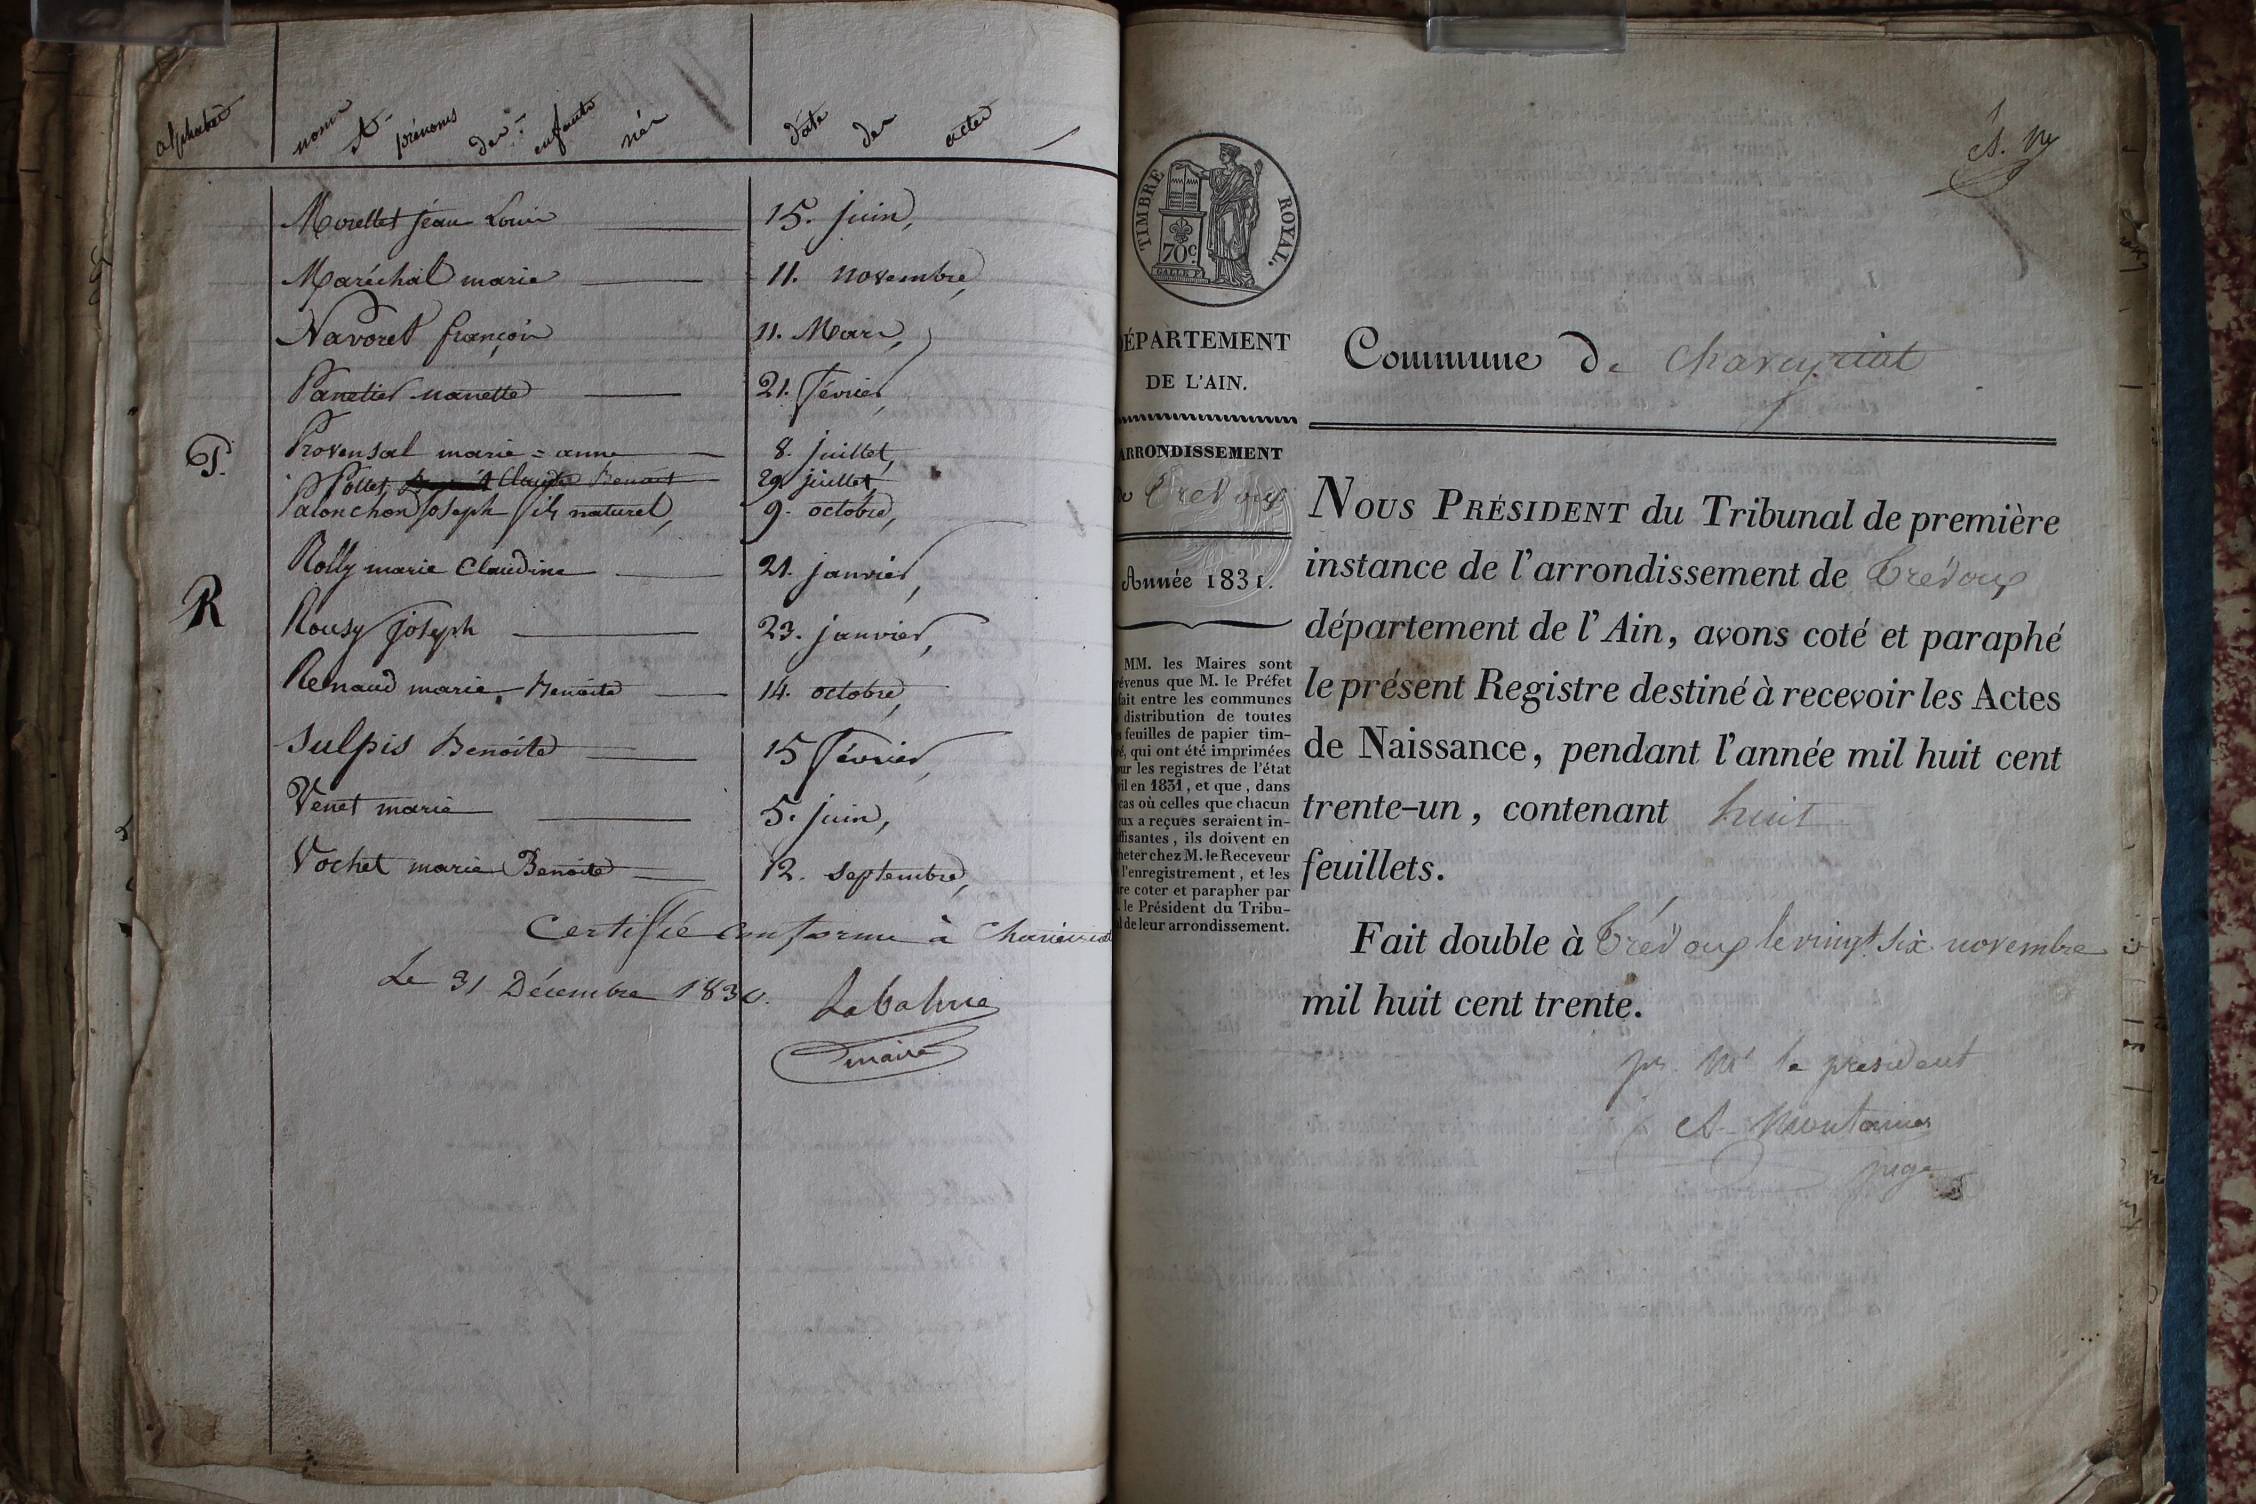 alphabet
noms et prénoms des enfants nés
date des actes
Morellet jéan Louis 15. juin,
Maréchal marie 11. novembre,
Navoret françois 11. Mars,
Panetier nanette 21. février,
P. Provensal marie = anne 8. juillet,
Pollet, Claude Benoit 29. juillet,
Palonchon Joseph fils naturel, 9. octobre,
Rolly marie Claudine 21. janvier,
R Rousy joseph 23. janvier,
Renaud marie, Benoite 14. octobre,
Sulpis Benoite 15 février,
Venet marie 5. juin,
Vochet marie Benoite 12. septembre,
Certifié conforme à
Le 31 Décembre 1830.
maire
TIMBRE ROYAL.
70c.
DÉPARTEMENT
DE L'AIN.
ARRONDISSEMENT
de Trévoux
Année 1831.
MM. les Maires sont
évenus que M. le Préfet
fait entre les communes
distribution de toutes
s feuilles de papier tim-
é, qui ont été imprimées
ur les registres de l'état
il en 1831, et que, dans
cas où celles que chacun
ux a reçues seraient in-
ffisantes, ils doivent en
heter chez M. le Receveur
l'enregistrement, et les
re coter et parapher par
. le Président du Tribu-
l de leur arrondissement.
Commune de Chaveyriat
NOUS PRÉSIDENT du Tribunal de première
instance de l'arrondissement de Trévoux
département de l'Ain, avons coté et paraphé
le présent Registre destiné à recevoir les Actes
de Naissance, pendant l'année mil huit cent
trente-un, contenant huit
feuillets.
Fait double à Trévoux le vingt six novembre
mil huit cent trente.
pr. Mr le président
juge